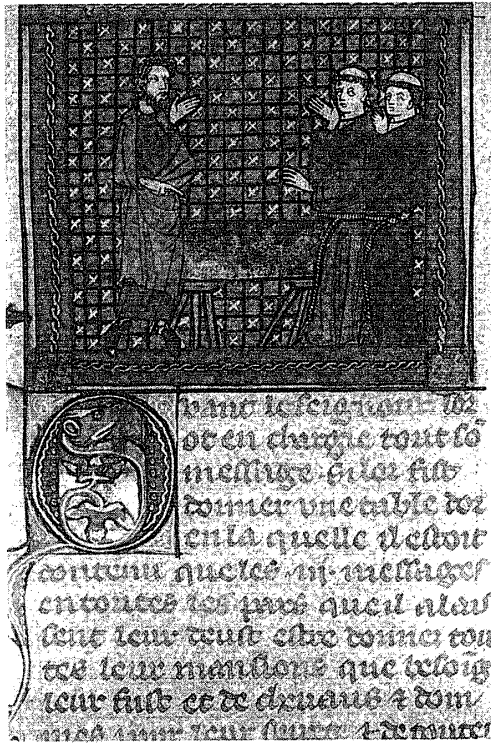 Quant le seigneur lor
ot en chargie tout so
message si lor fist
donner une table dor
en la quelle il estoit
contenu que les .iii. messages
en toutes les pars que il alais
sent leur deust estre donner tou
tes leur mansions que besoig
leur fust et de chevaus &
leur &